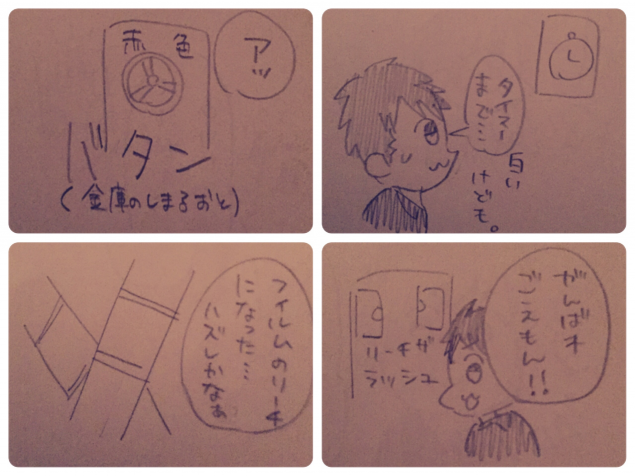 アッ
赤色
バタン
(金庫のしまるおと)
タイマー
まで…
白い
けども。
フイルムのリーチ
になった…
ハズレかなぁ
がんばれ
ごえもん!!
リーチザ
ラッシュ